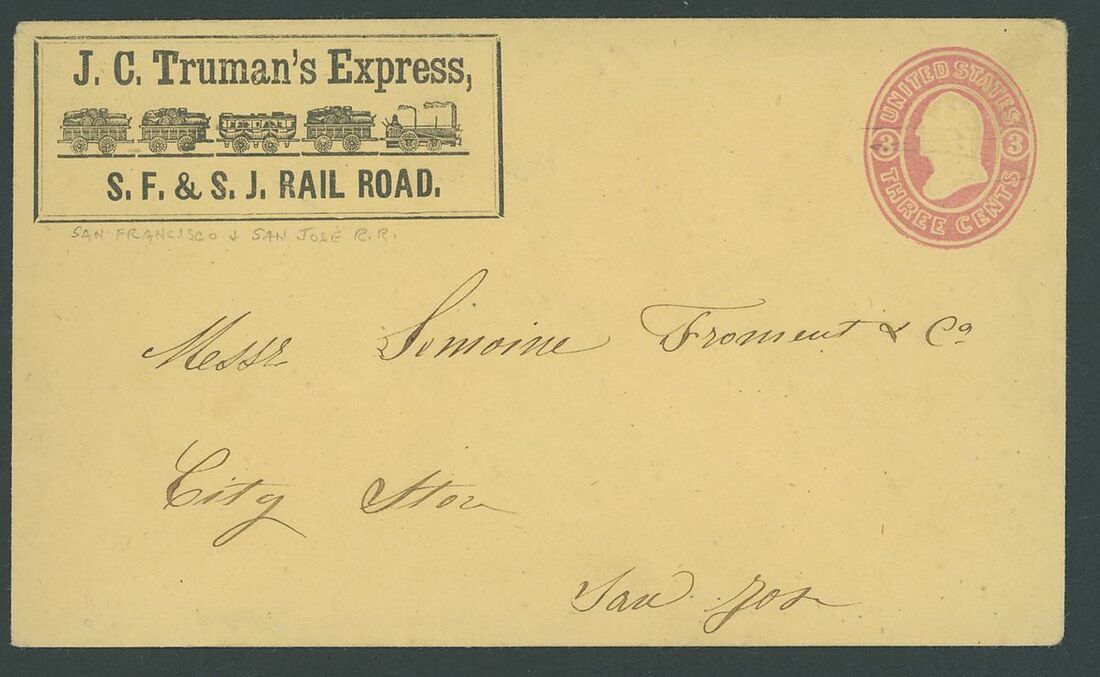 J. C. Truman's Express,
S. F. & S. J. RAIL ROAD.
SAN FRANCISCO & SAN JOSE R.R.
UNITED STATES
3 3
THREE CENTS
Messr Simoine Froment & Co
City Store
San Jose